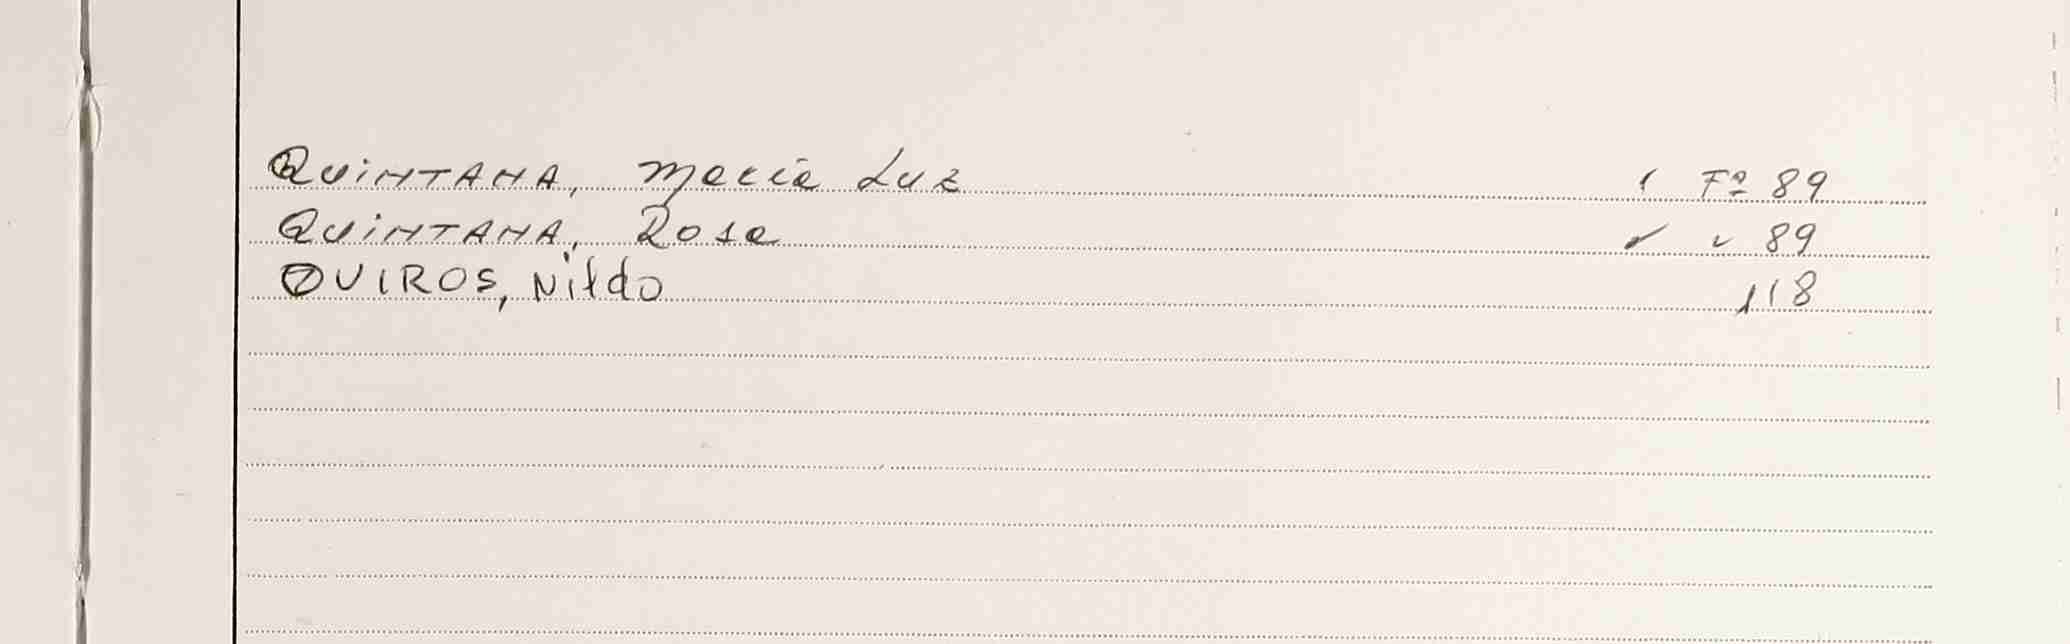 QUINTANA, María Luz ✓ Fº 89
QUINTANA, Rosa ✓ " 89
QUIROS, Nildo 118